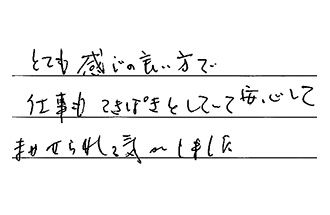 とても感じの良い方で
仕事もてきぱきとしていて安心して
まかせられる気がしました